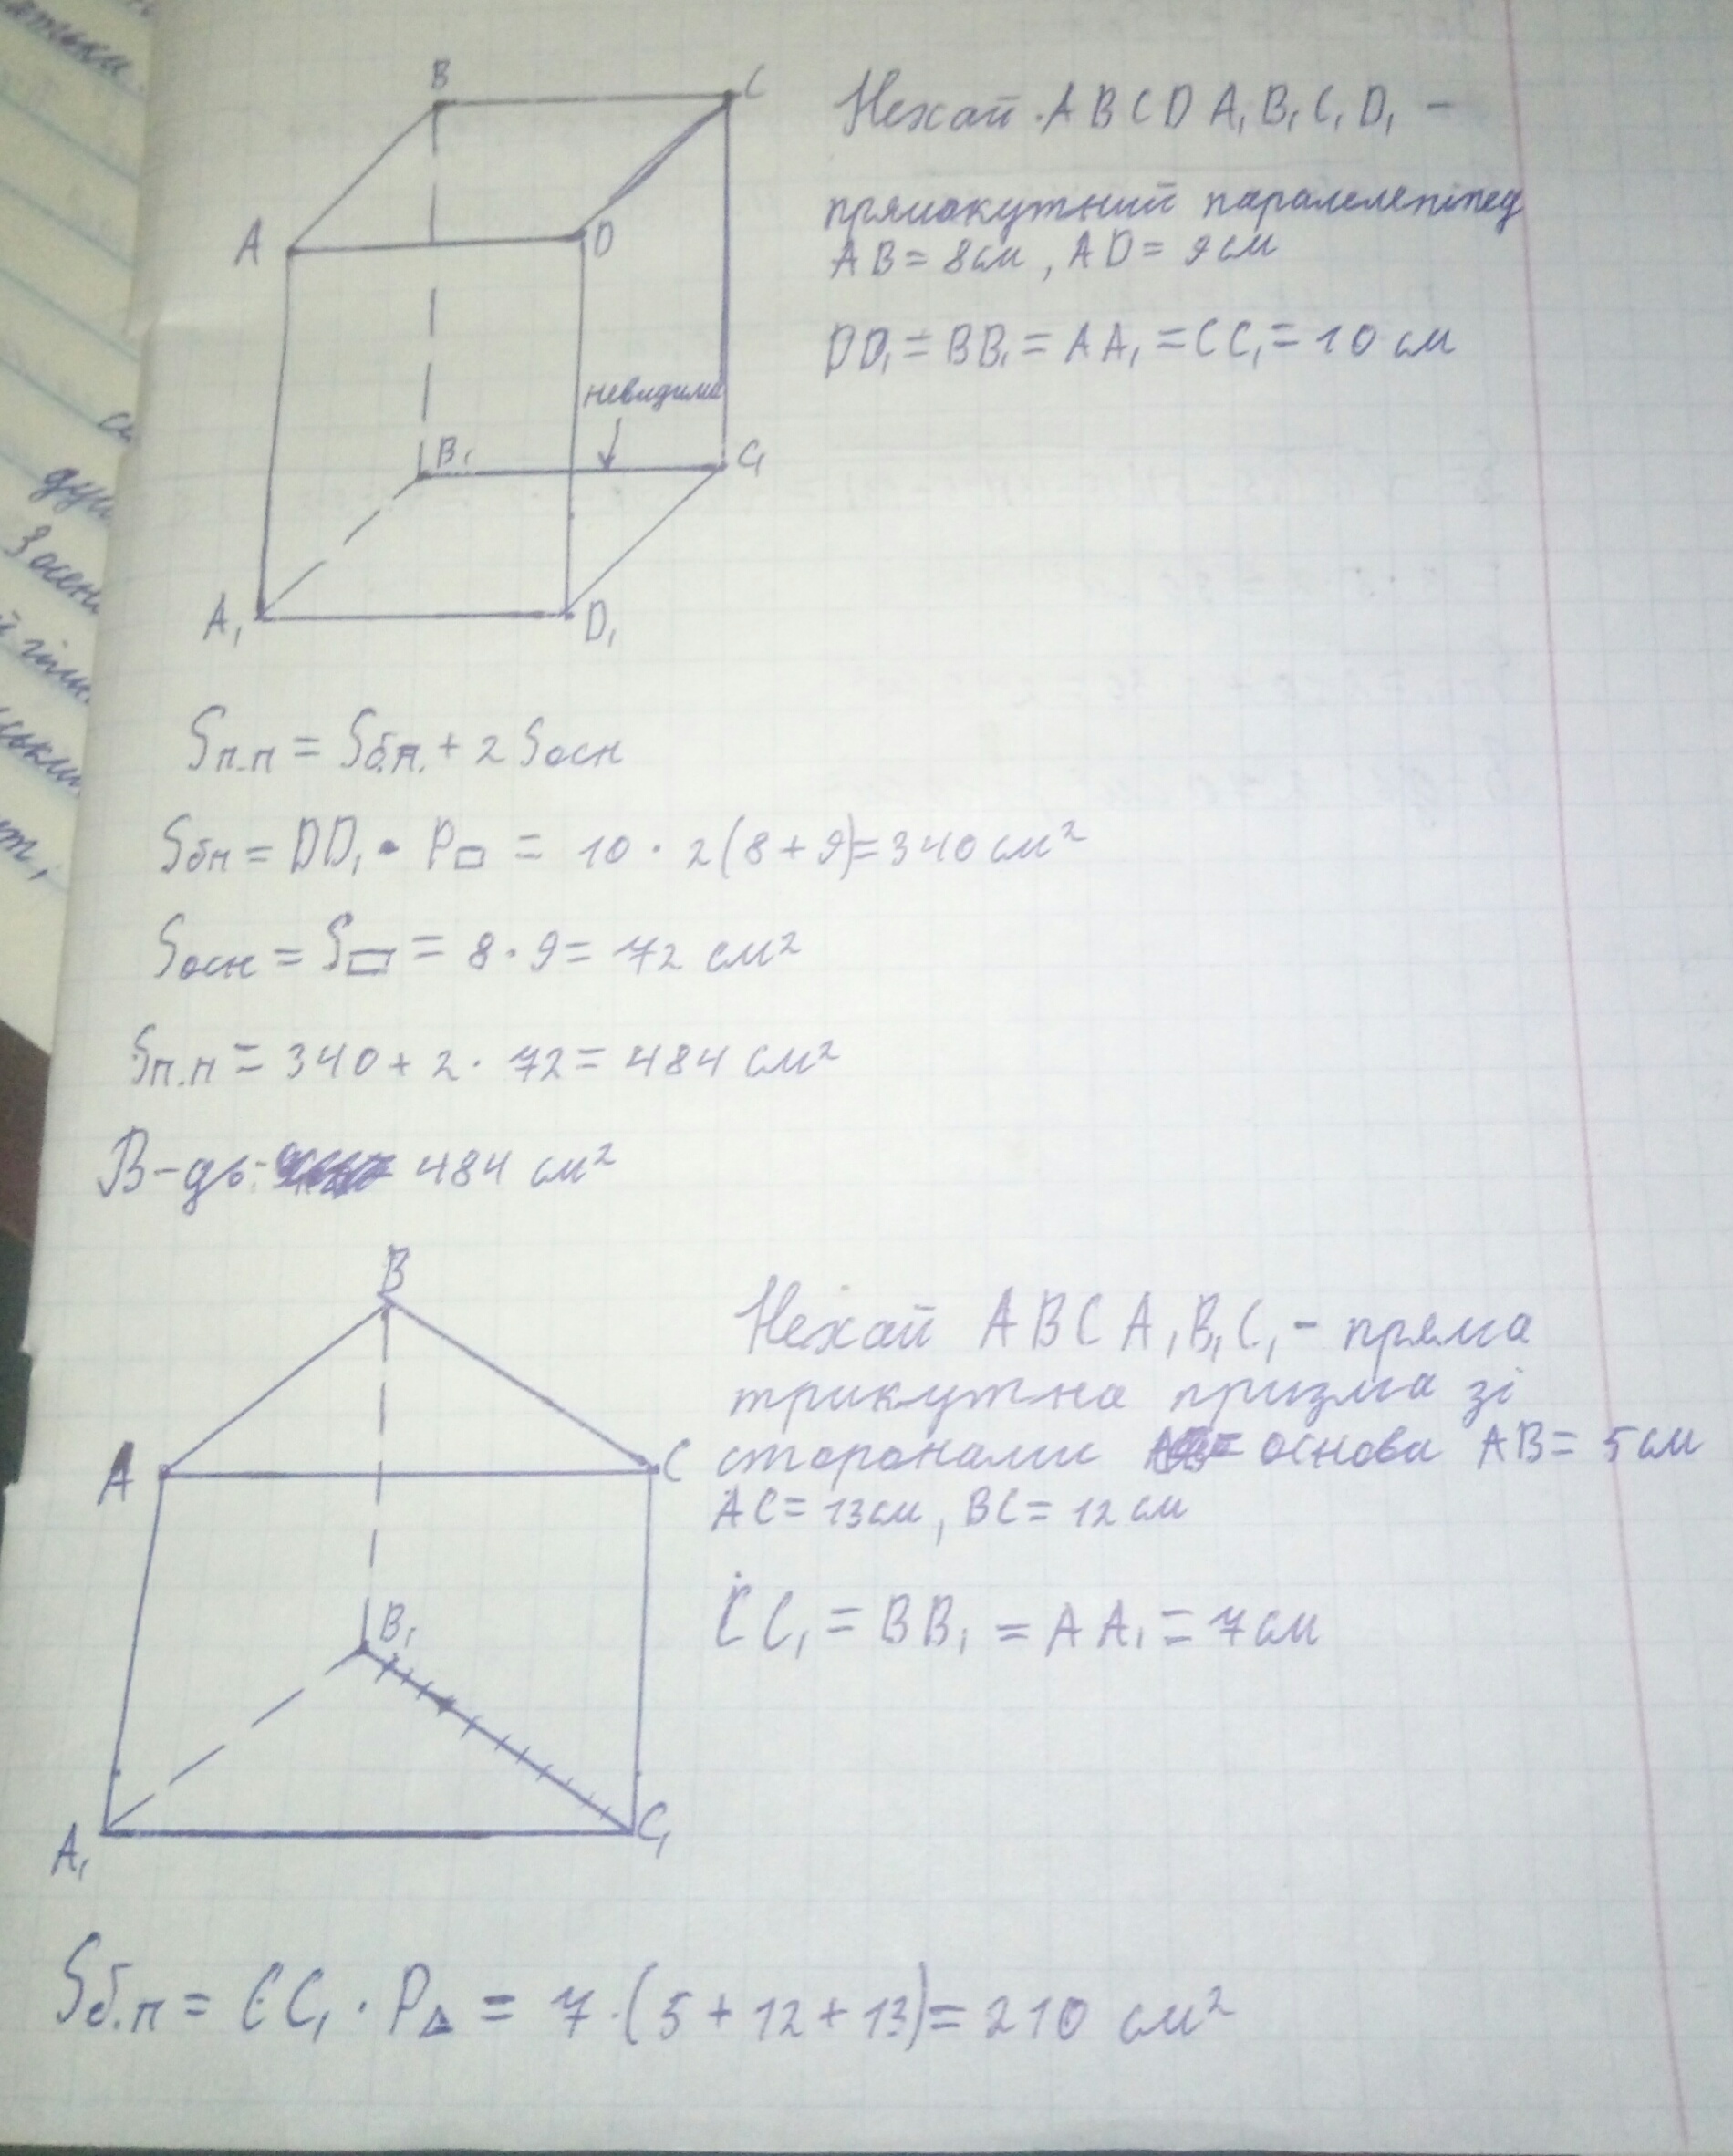 B
C
A
D
невидима
B₁
C₁
A₁
D₁
Нехай ABCD A₁B₁C₁D₁ –
прямокутний паралелепіпед
AB = 8 см, AD = 9 см
DD₁ = BB₁ = AA₁ = CC₁ = 10 см
Sп.п = Sб.п. + 2 Sосн
Sбп = DD₁ · P▭ = 10 · 2(8 + 9) = 340 см²
Sосн = S▭ = 8 · 9 = 72 см²
Sп.п = 340 + 2 · 72 = 484 см²
В-дь: 484 см²
B
A
C
B₁
A₁
C₁
Нехай ABC A₁B₁C₁ – пряма
трикутна призма зі
сторонами основи AB = 5 см
AC = 13 см, BC = 12 см
CC₁ = BB₁ = AA₁ = 7 см
Sб.п = CC₁ · P△ = 7 · (5 + 12 + 13) = 210 см²